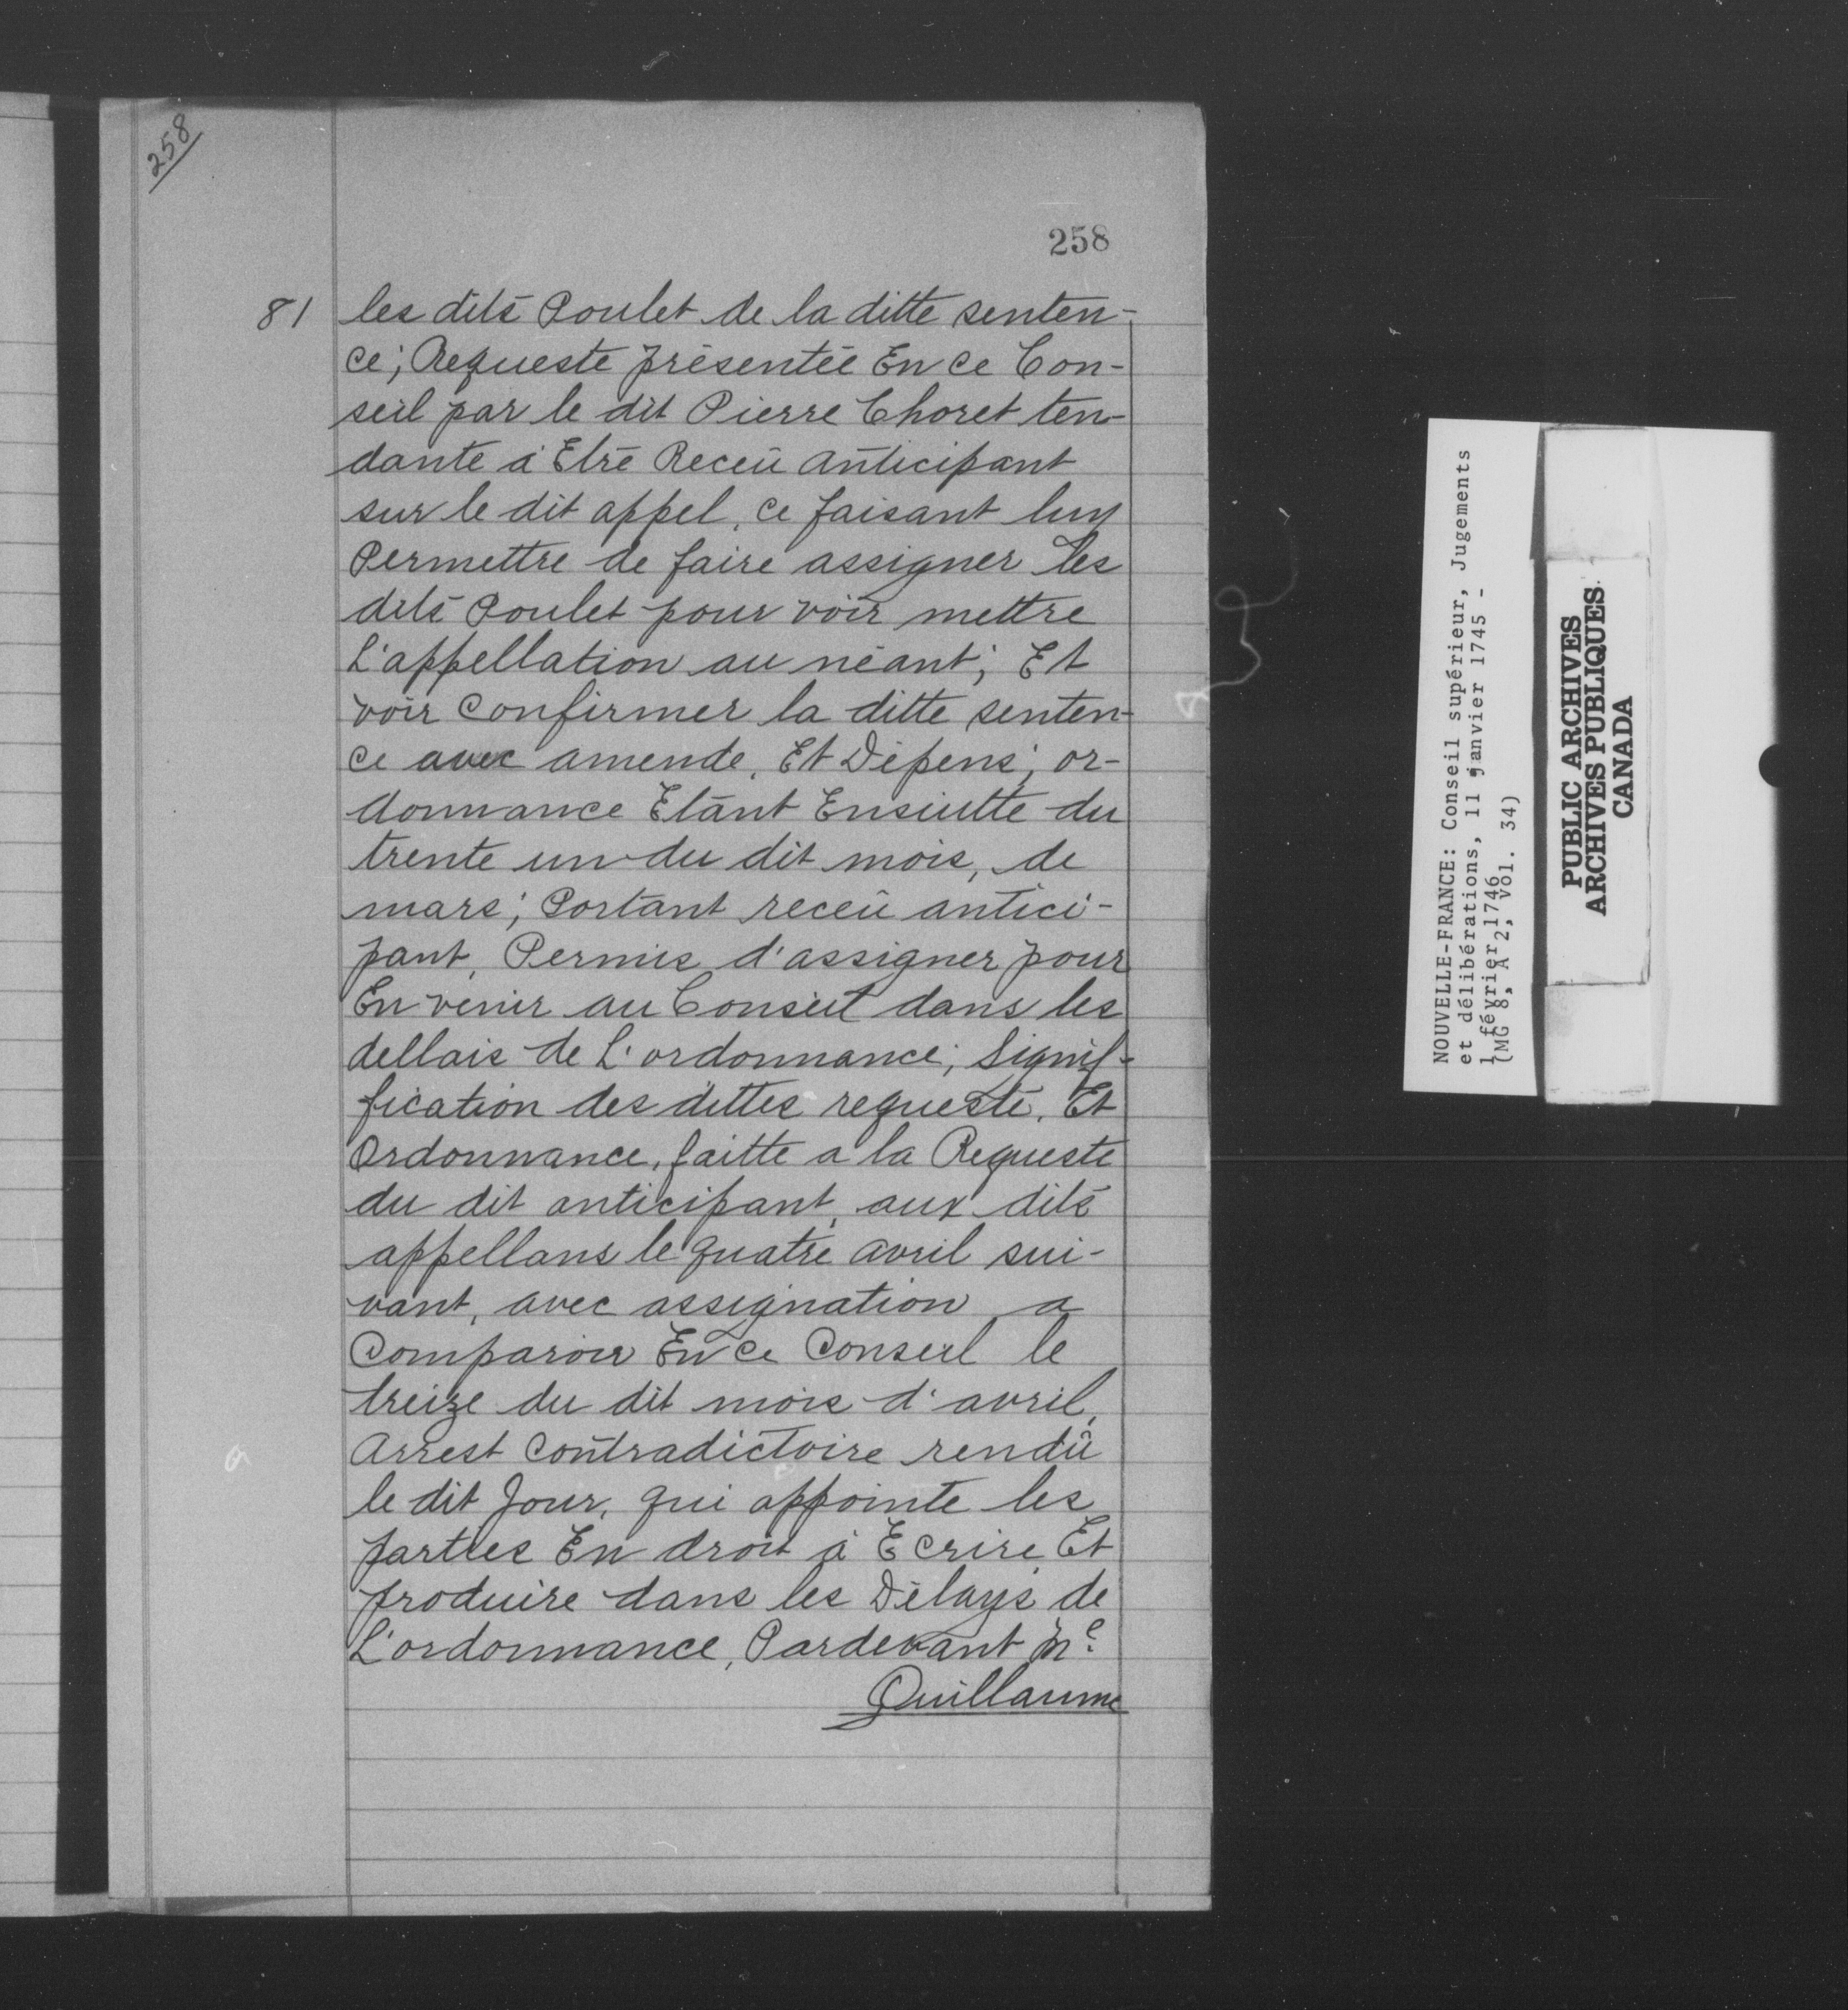 258
258
81
les dits Poulet de la ditte senten-
ce; Requeste présentée En ce Con-
seil par le dit Pierre Choret ten-
dante à Etre Receû anticipant
sur le dit appel, ce faisant luy
Permettre de faire assigner les
dits Poulet pour voir mettre
L'appellation au néant; Et
voir confirmer la ditte senten-
ce avec amende, Et Dépens; or-
donnance Etant Ensuitte du
trente un du dit mois, de
mars; Portant receû antici-
pant, Permis d'assigner pour
En venir au Conseil dans les
dellais de L'ordonnance; Signif-
fication des dittes requeste, Et
Ordonnance, faitte a la Requeste
du dit anticipant, aux dits
appellans le quatre avril sui-
vant, avec assignation a
Comparoir En ce Conseil le
treize du dit mois d'avril,
Arrest Contradictoire rendû
le dit Jour, qui appointe les
parties En droit à Ecrire, Et
produire dans les Délays de
L'ordonnance, Pardevant Me.
Guillaume
NOUVELLE-FRANCE: Conseil supérieur, Jugements
et délibérations, 11 janvier 1745 -
1 février 1746
(MG 8, A 2, vol. 34)
PUBLIC ARCHIVES
ARCHIVES PUBLIQUES
CANADA